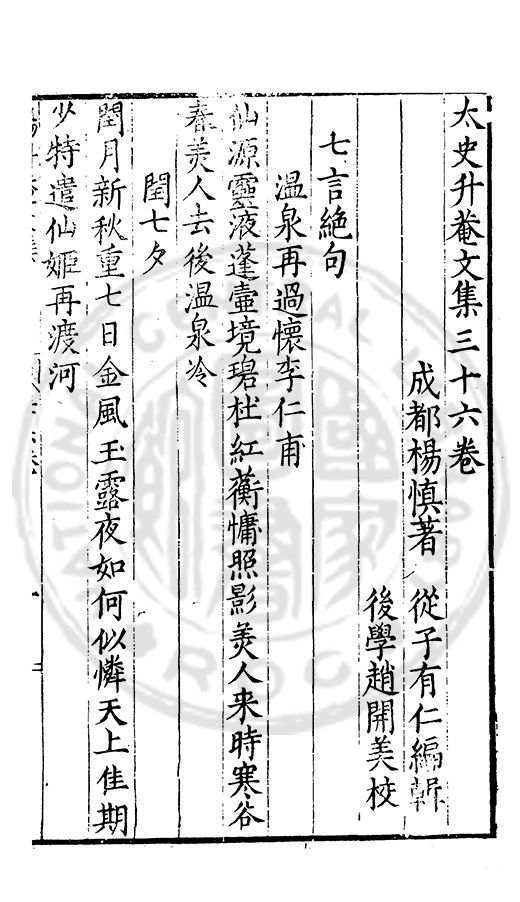 太史升菴文集三十六卷
成都楊慎著 從子有仁編輯
後學趙開美校
七言絶句
溫泉再過懷李仁甫
仙源靈液蓬壺境碧杜紅蘅慵照影美人来時寒谷
春美人去後溫泉冷
閏七夕
閏月新秋重七日金風玉露夜如何似憐天上佳期
少特遣仙姬再渡河